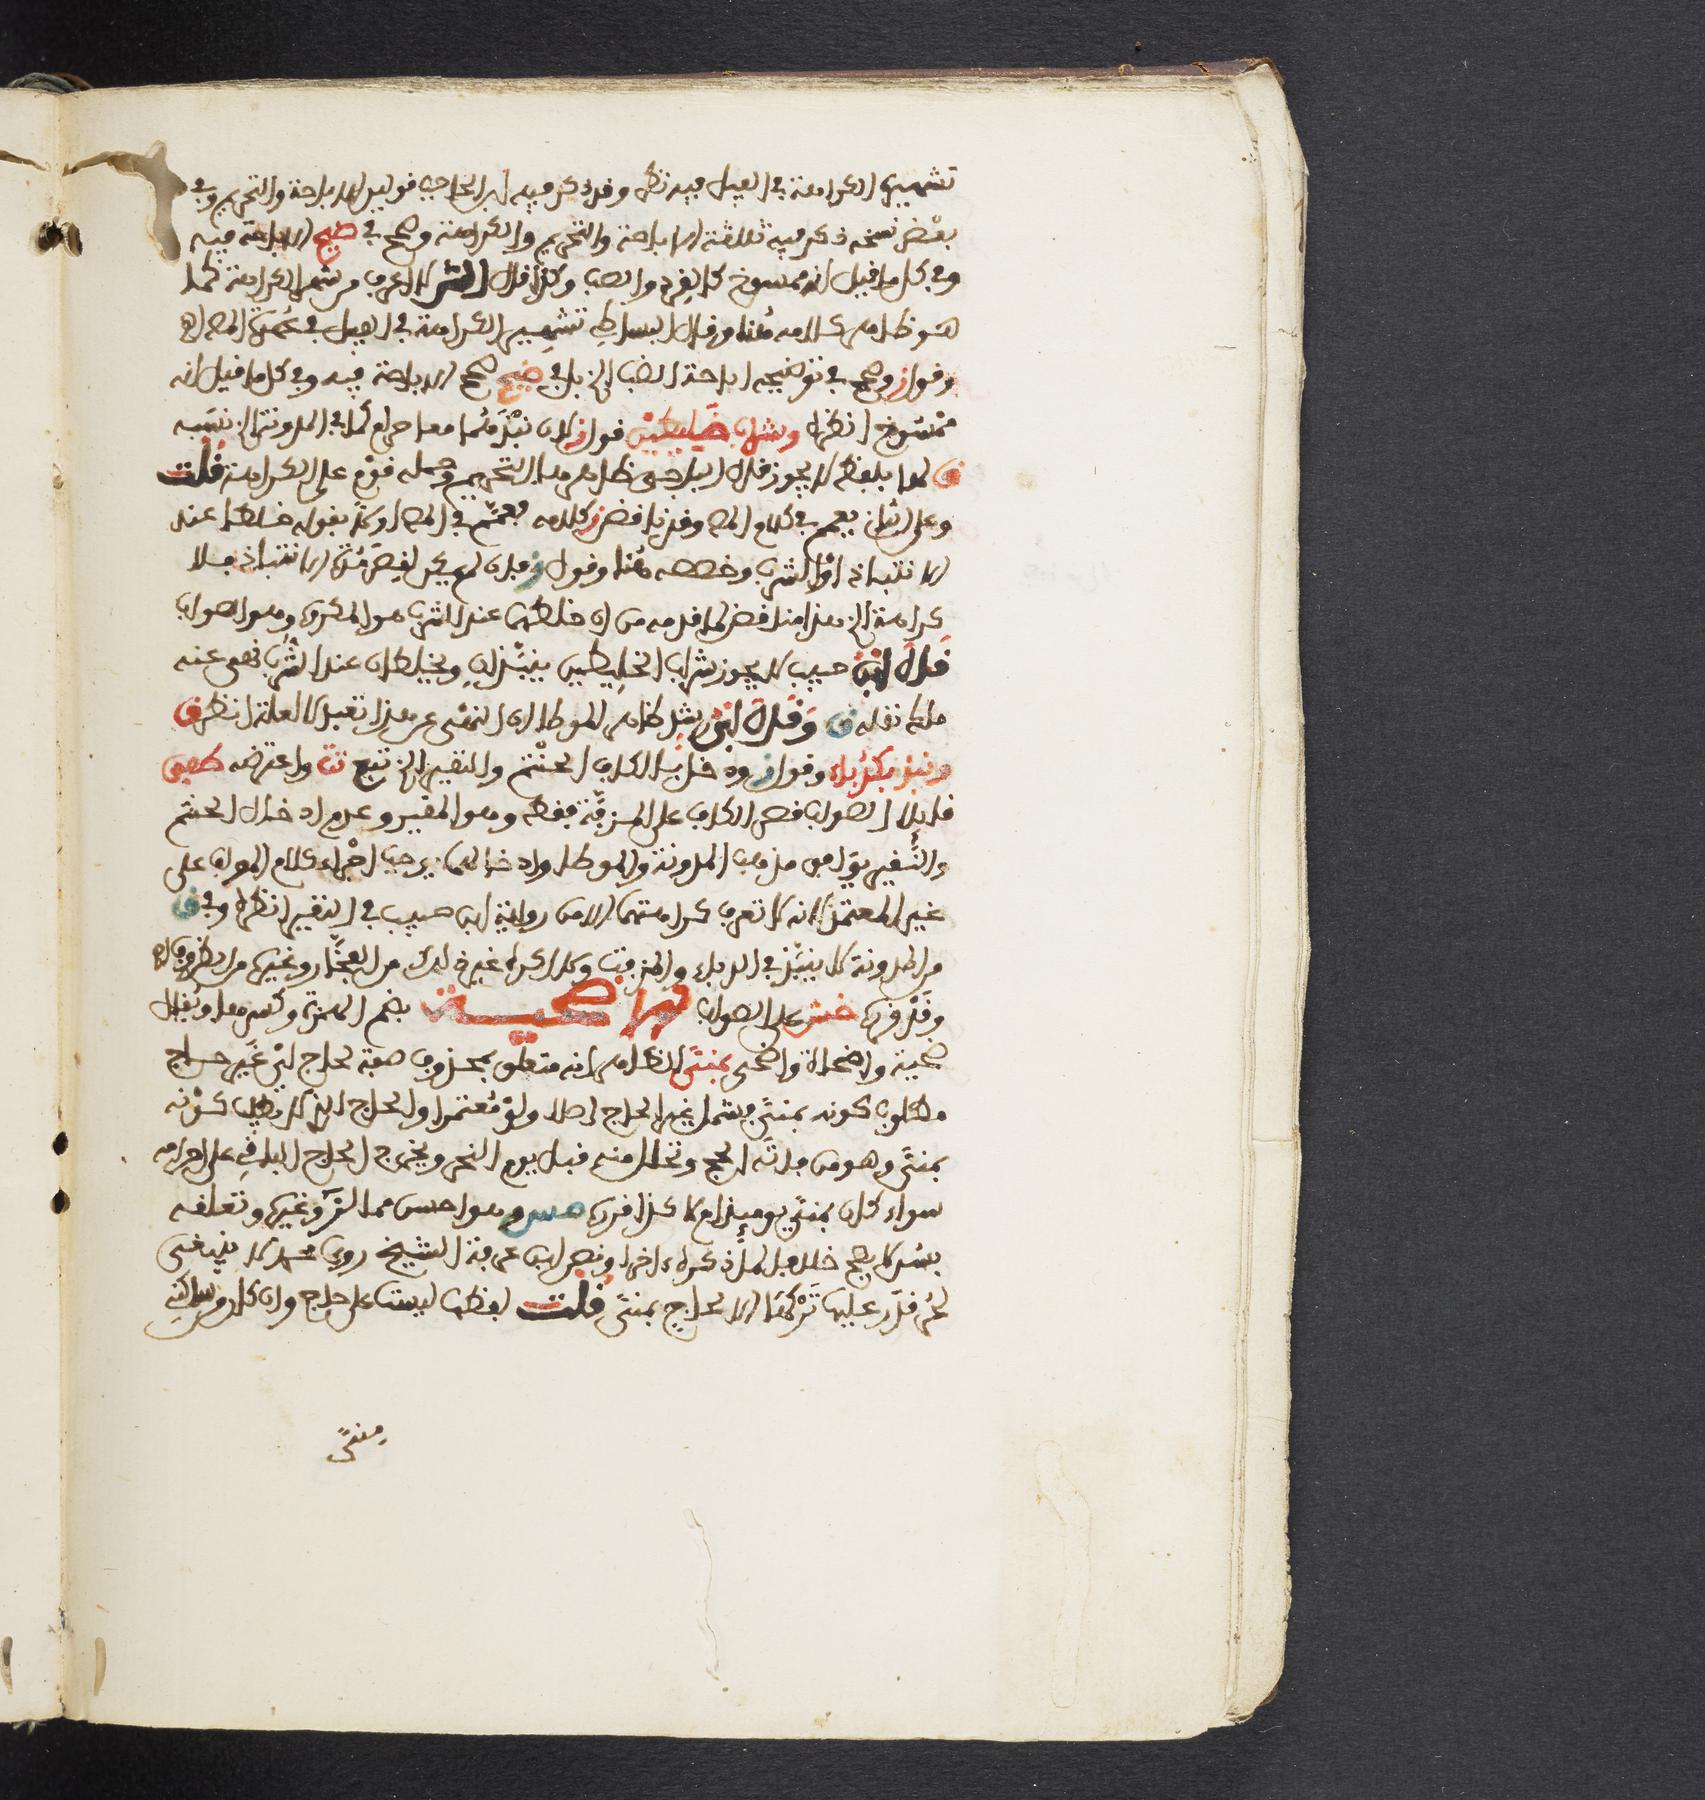 تشهير الكراهة في الفيل فيه نظر وقد ذكر فيه ابن الحاجب قولين الاباحة والتحريم وفي
بعض نسخه ذكر فيه ثلاثة الاباحة والتحريم والكراهة وصحح في ضيح الاباحة فيه
وفي كل ما قيل انه ممسوخ كالقرد والضب وكذا قال الشر لا اعرف من شهر الكراهة كما
هو ظاهر كلامه هنا وقال البساطي تشهير الكراهة في الفيل في عهدة المص اه
وقول ز وصحح في توضيحه اباحة الضب الخ بل في ضيح صحح الاباحة فيه وفي كل ما قيل انه
ممسوخ انظره وشراب خليطين قول ز لان نبذهما معا حرام كما في المدونة الخ نسبه
ق لها بلفظ لا يجوز قال الباجي ظاهره التحريم وحمله قوم على الكراهة قلت
وعلى الثاني يعمم في كلام المص وقد ناقض ز كلامه فعمم في المص اولا بقوله خلطا عند
الانتباذ او الشرب وخصصه هنا وقول ز فان لم يكن لقصد الانتباذ فلا
كراهة الخ هذا مناقض لما قدمه من ان خلطهما عند الشرب هو المكروه وهو الصواب
قال ابن حبيب لا يجوز شراب الخليطين ينبذان ويخلطان عند الشرب نهى عنه
ملك نقله ق وقال ابن رشد ظاهر الموطا ان النهي عن هذا تعبد لا لعلة انظر ق
ونبذ بكدباء وقول ز ودخل بالكاف الحنتم والنقير الخ تبع تت واعترضه طفى
قايلا الصواب قصر الكاف على المزفت فقط وهو المقير وعدم ادخال الحنتم
والنقير يوافق مذهب المدونة والموطا وادخالهما يوجب اجراء كلام المولف على
غير المعتمد لانه لا تعرف كراهتهما الا من رواية ابن حبيب في النقير انظره وفي ق
من المدونة لا ينبذ في الدباء والمزفت ولا اكره غير ذلك من الفخار وغيره من الظروف اه
وقدره خش على الصواب الاضحية بضم الهمزة وكسرها ويقال
ضحية واضحاة واضحى بمنى الظاهر انه متعلق بمحذوف صفة لحاج اي غير حاج
مطلوب كونه بمنى فيشمل غير الحاج اصلا ولو معتمرا والحاج الذي لا يطلب كونه
بمنى وهو من فاته الحج وتحلل منه قبل يوم النحر ويخرج الحاج الباقي على احرامه
سواء كان بمنى يوميذ ام لا كذا قرره مس وهو احسن مما لز وغيره وتعلقه
بسن لا يصح خلافا لما ذكراه اخرا ونص ابن عرفة الشيخ روى محمد لا ينبغي
لحر قدر عليها تركها الا لحاج بمنى قلت لفظها ليست على حاج وان كان من ساكني
منى